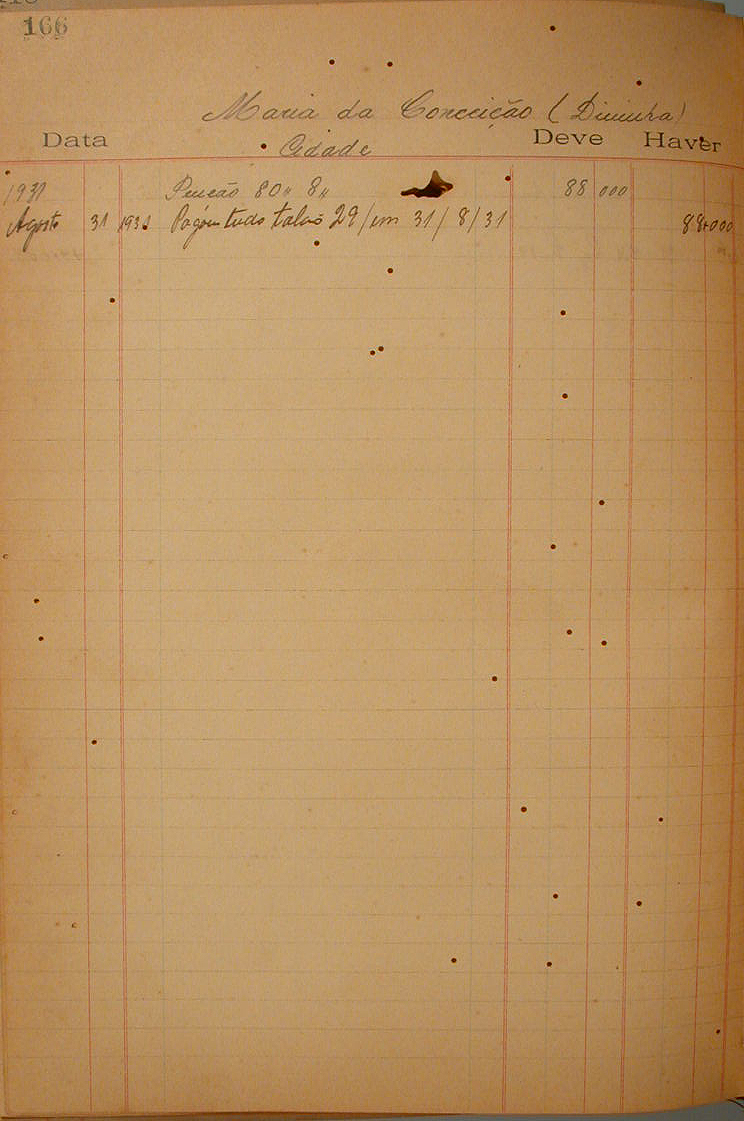 166
Maria da Conceição (Divinha)
Data Cidade Deve Haver
1931 Pensão 80,, 8,, 88 000
Agosto 31 1931 Pagou tudo talão 29/em 31/8/31 88+000